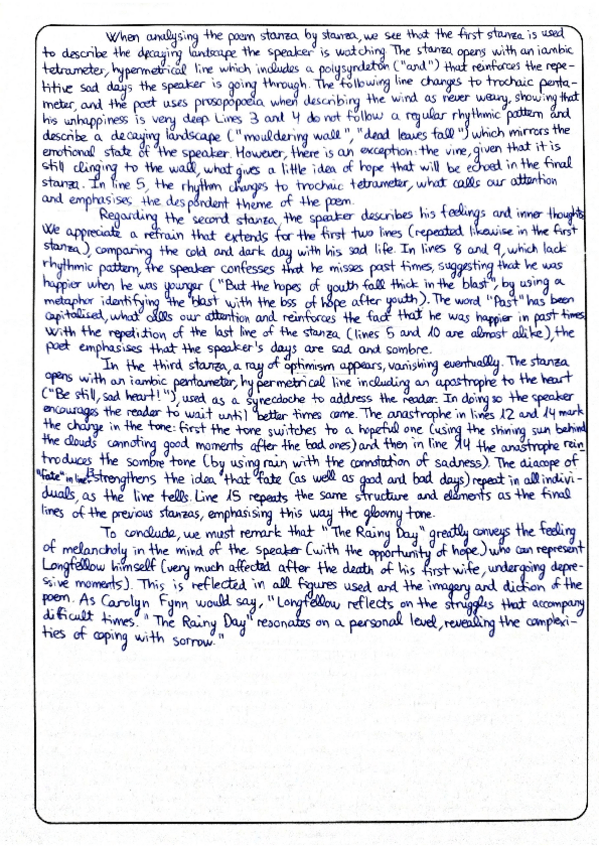 When analysing the poem stanza by stanza, we see that the first stanza is used
to describe the decaying landscape the speaker is watching. The stanza opens with an iambic
tetrameter, hypermetrical line which includes a polysyndeton ("and") that reinforces the repe-
titive sad days the speaker is going through. The following line changes to trochaic penta-
meter, and the poet uses prosopopoeia when describing the wind as never weary, showing that
his unhappiness is very deep. Lines 3 and 4 do not follow a regular rhythmic pattern and
describe a decaying landscape ("mouldering wall", "dead leaves fall") which mirrors the
emotional state of the speaker. However, there is an exception: the vine, given that it is
still clinging to the wall, what gives a little idea of hope that will be echoed in the final
stanza. In line 5, the rhythm changes to trochaic tetrameter, what calls our attention
and emphasises the despondent theme of the poem.
Regarding the second stanza, the speaker describes his feelings and inner thoughts.
We appreciate a refrain that extends for the first two lines (repeated likewise in the first
stanza), comparing the cold and dark day with his sad life. In lines 8 and 9, which lack
rhythmic pattern, the speaker confesses that he misses past times, suggesting that he was
happier when he was younger ("But the hopes of youth fall thick in the blast", by using a
metaphor identifying the blast with the loss of hope after youth). The word "Past" has been
capitalised, what calls our attention and reinforces the fact that he was happier in past times.
With the repetition of the last line of the stanza (lines 5 and 10 are almost alike), the
poet emphasises that the speaker's days are sad and sombre.
In the third stanza, a ray of optimism appears, vanishing eventually. The stanza
opens with an iambic pentameter, hypermetrical line including an apostrophe to the heart
("Be still, sad heart!"), used as a synecdoche to address the reader. In doing so the speaker
encourages the reader to wait until better times come. The anastrophe in lines 12 and 14 mark
the change in the tone: first the tone switches to a hopeful one (using the shining sun behind
the clouds connoting good moments after the bad ones) and then in line 14 the anastrophe rein-
troduces the sombre tone (by using rain with the connotation of sadness). The diacope of
"fate" in line 13 strengthens the idea that fate (as well as good and bad days) repeat in all indivi-
duals, as the line tells. Line 15 repeats the same structure and elements as the final
lines of the previous stanzas, emphasising this way the gloomy tone.
To conclude, we must remark that "The Rainy Day" greatly conveys the feeling
of melancholy in the mind of the speaker (with the opportunity of hope) who can represent
Longfellow himself (very much affected after the death of his first wife, undergoing depre-
ssive moments). This is reflected in all figures used and the imagery and diction of the
poem. As Carolyn Fynn would say, "Longfellow reflects on the struggles that accompany
difficult times. "The Rainy Day" resonates on a personal level, revealing the complexi-
ties of coping with sorrow."